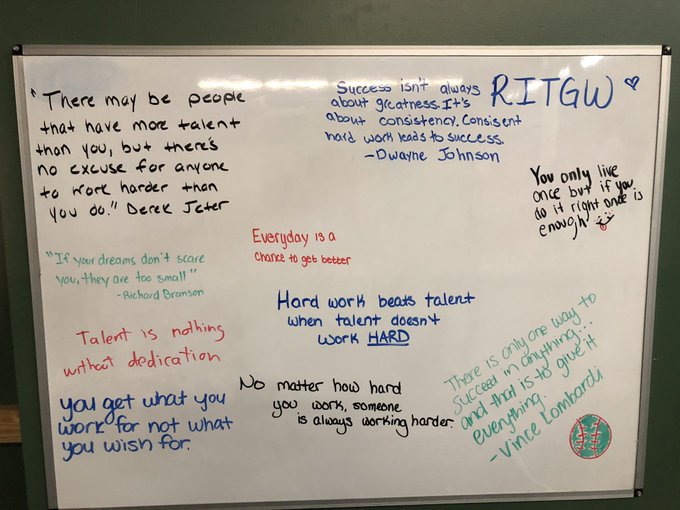 "There may be people
that have more talent
than you, but there's
no excuse for anyone
to work harder than
you do." Derek Jeter
Success isn't always
about greatness. It's
about consistency. Consisent
hard work leads to success.
-Dwayne Johnson
RITGW
You only live
once but if you
do it right once is
enough
"If your dreams don't scare
you, they are too small"
-Richard Branson
Everyday is a
chance to get better
Hard work beats talent
when talent doesn't
work HARD
Talent is nothing
without dedication
you get what you
work for not what
you wish for.
No matter how hard
you work, someone
is always working harder.
There is only one way to
succeed in anything...
and that is to give it
everything.
-Vince Lombardi